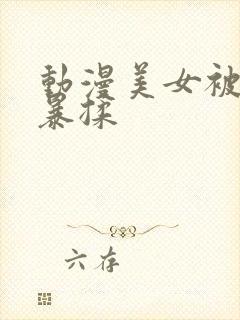 動漫美女被
暴揉
六存